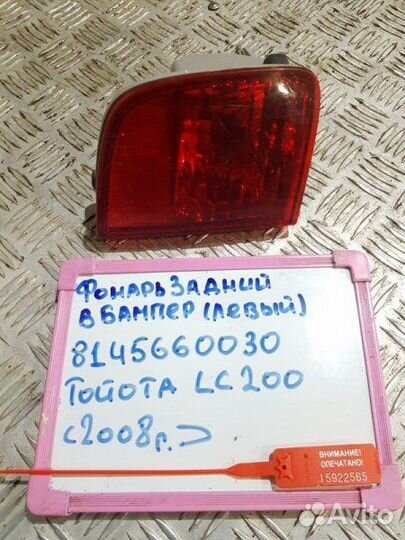 Фонарь задний
в бампер (левый)
8145660030
Тойота LC200
(2008г.)
ВНИМАНИЕ!
ОПЕЧАТАНО!
15922565
Avito